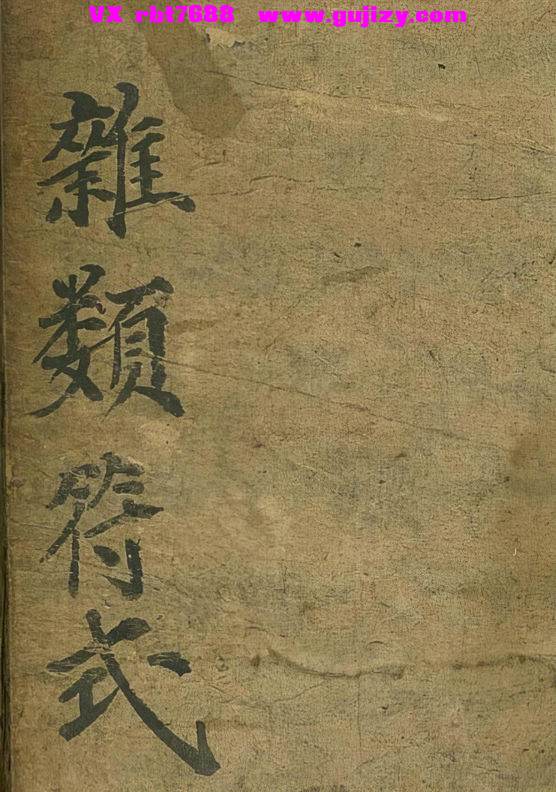 VX rbt7688 www.gujizy.com
雜類符式